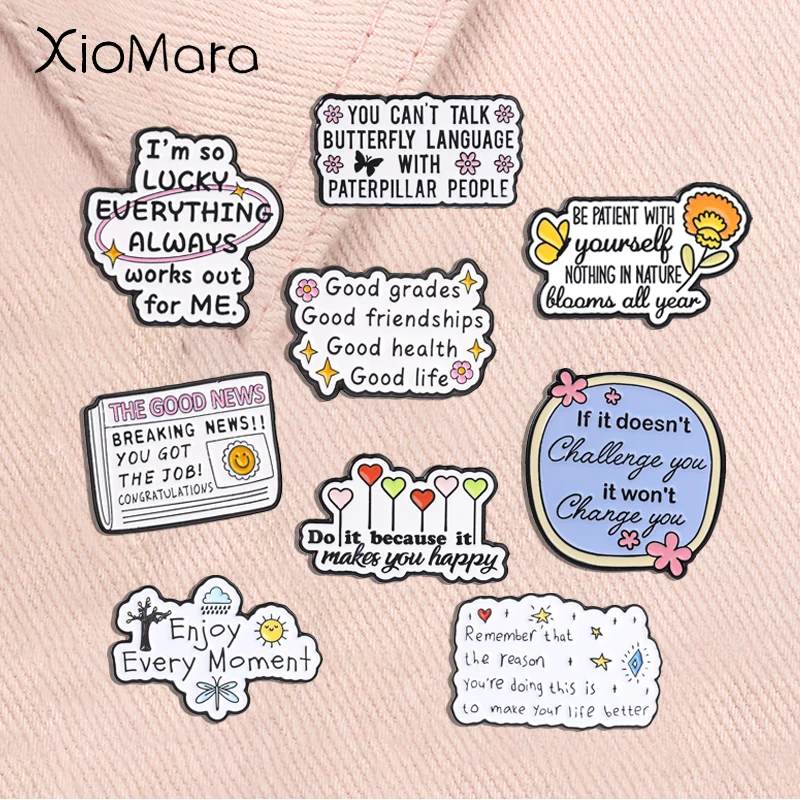 XioMara
YOU CAN'T TALK
BUTTERFLY LANGUAGE
WITH
PATERPILLAR PEOPLE
I'm so
LUCKY
EVERYTHING
ALWAYS
works out
for ME.
BE PATIENT WITH
yourself
NOTHING IN NATURE
blooms all year
Good grades
Good friendships
Good health
Good life
THE GOOD NEWS
BREAKING NEWS!!
YOU GOT
THE JOB!
CONGRATULATIONS
If it doesn't
Challenge you
it won't
Change you
Do it because it
makes you happy
Enjoy
Every Moment
Remember that
the reason
you're doing this is
to make your life better